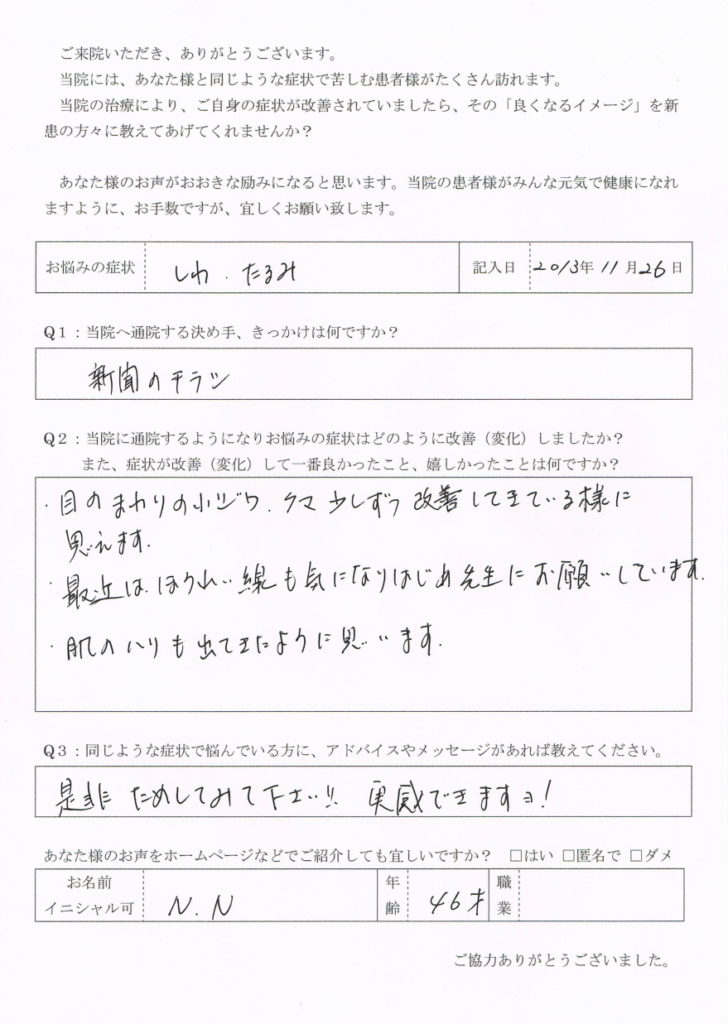 ご来院いただき、ありがとうございます。
当院には、あなた様と同じような症状で苦しむ患者様がたくさん訪れます。
当院の治療により、ご自身の症状が改善されていましたら、その「良くなるイメージ」を新
患の方々に教えてあげてくれませんか？
あなた様のお声がおおきな励みになると思います。当院の患者様がみんな元気で健康になれ
ますように、お手数ですが、宜しくお願い致します。
お悩みの症状 しわ．たるみ 記入日 2013年 11月26日
Q1：当院へ通院する決め手、きっかけは何ですか？
新聞のチラシ
Q2：当院に通院するようになりお悩みの症状はどのように改善（変化）しましたか？
また、症状が改善（変化）して一番良かったこと、嬉しかったことは何ですか？
・目のまわりの小ジワ．クマ 少しずつ 改善してきている様に
思えます.
・最近は、ほうれい線も気になりはじめ先生にお願いしています.
・肌のハリも出てきたように思います.
Q3：同じような症状で悩んでいる方に、アドバイスやメッセージがあれば教えてください。
是非 ためしてみて下さい!! 実感できますョ!
あなた様のお声をホームページなどでご紹介しても宜しいですか？ □はい □匿名で □ダメ
お名前 年 職
イニシャル可 N.N 齢 46才 業
ご協力ありがとうございました。